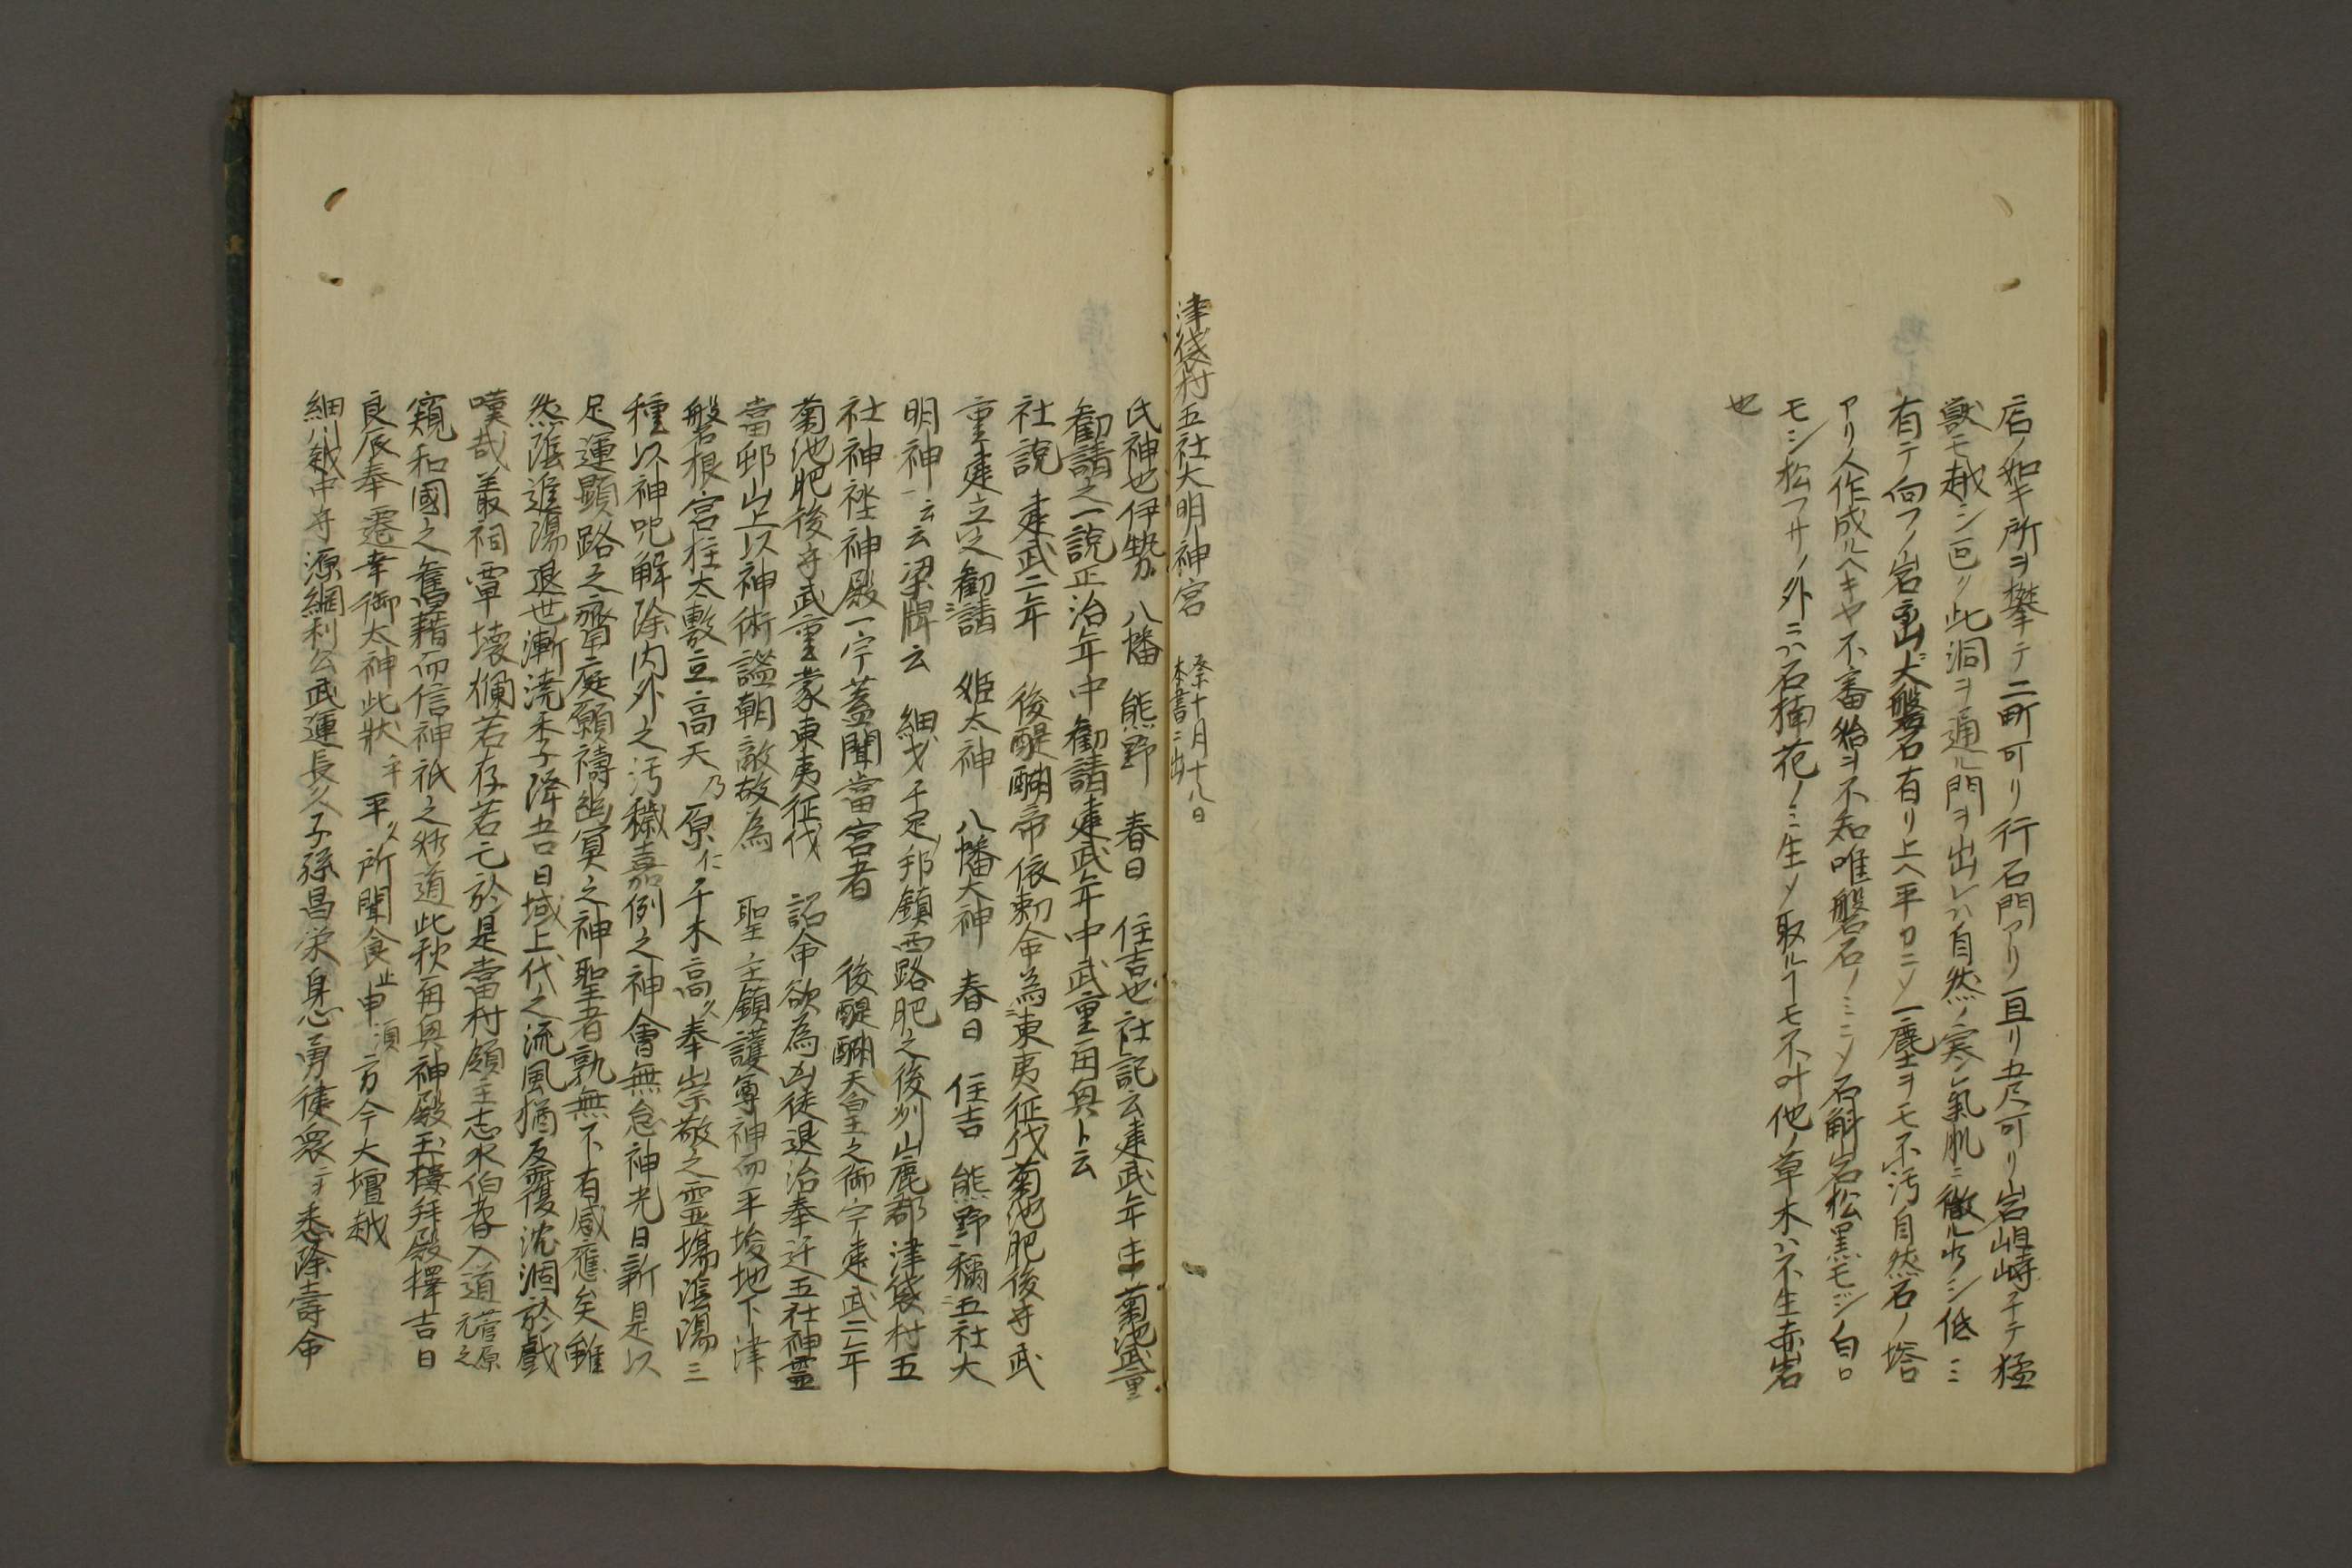 店ノ如キ所ヲ攀テ二町可リ行石門アリ亘リ五尺可リ岩岨峙チテ猛
獣モ越シ叵ク此洞ヲ通ル門ヲ出レハ自然ノ寒氣肌ニ徹ル少シ低ミ
有テ向フノ岩大盤石有リ上ヘ平カニソ一塵ヲモ不汚自然石ノ塔
アリ人作成ルヘキヤ不審紿ヲ不知唯盤石ノミニソ石斛岩松黒モジ白口
モシ松フサノ外ニハ石楠花ノミ生ソ取ルヿモ不叶他ノ草木ハ不生赤岩
也
津袋村五社大明神宮 祭十月十八日 本書ニ出
氏神也伊勢 八幡 熊野 春日 住吉也社記云建武年中菊池武重
勧請之一説正治年中勧請建武年中武重再興ト云
社説 建武二年 後醍醐帝依勅命為東夷征伐菊池肥後守武
重建立之勧請 姫太神 八幡大神 春日 住吉 熊野稱五社大
明神云云梁牌云 細戈千足邦鎮西路肥之後州山鹿郡津袋村五
社神祠神殿一宇蓋聞當宮者 後醍醐天皇之御宇建武二年
菊池肥後守武重蒙東夷征伐 詔命欲為凶徒退治奉迂五社神霊
當邨山上以神術謐朝敵故為 聖主鎮護尊神而平坡地下津
磐根宮柱太敷立高天乃原仁千木高久奉崇敬之霊場陰陽三
種以神咒解除内外之汚穢嘉例之神會無怠神光日新是以
足運顕路之齋庭願禱幽冥之神聖者孰無不有感應矣雖
然陰進陽退世漸澆季子降吉日域上代之流風猶反覆沈涸於戲
嘆哉叢祠覃壊爛若存若亡於是當村領主志水伯耆入道菅原元之
窺和國之舊藉而信神祇之術道此秋再興神殿玉樓拜殿擇吉日
良辰奉遷幸御太神此状乎平久所聞食止申須方今大壇越
細川越中守源綱利公武運長久子孫昌栄身心勇健衆テヲ悉除壽命